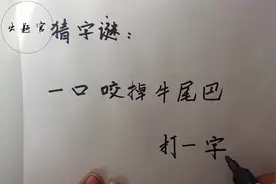 猜字谜：
一口咬掉牛尾巴
打一字